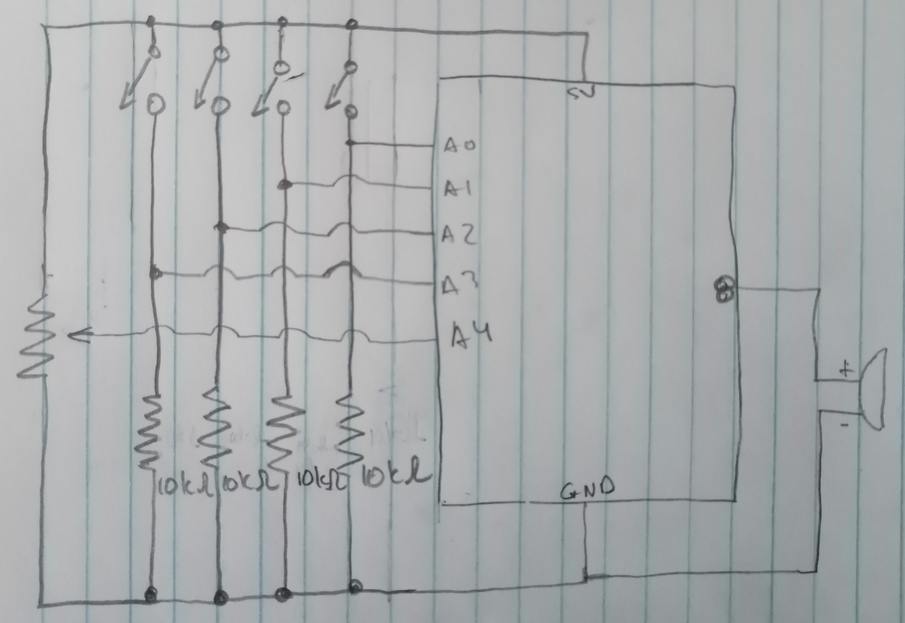 5V
A0
A1
A2
A3
8
A4
+
-
10kΩ 10kΩ 10kΩ 10kΩ
GND